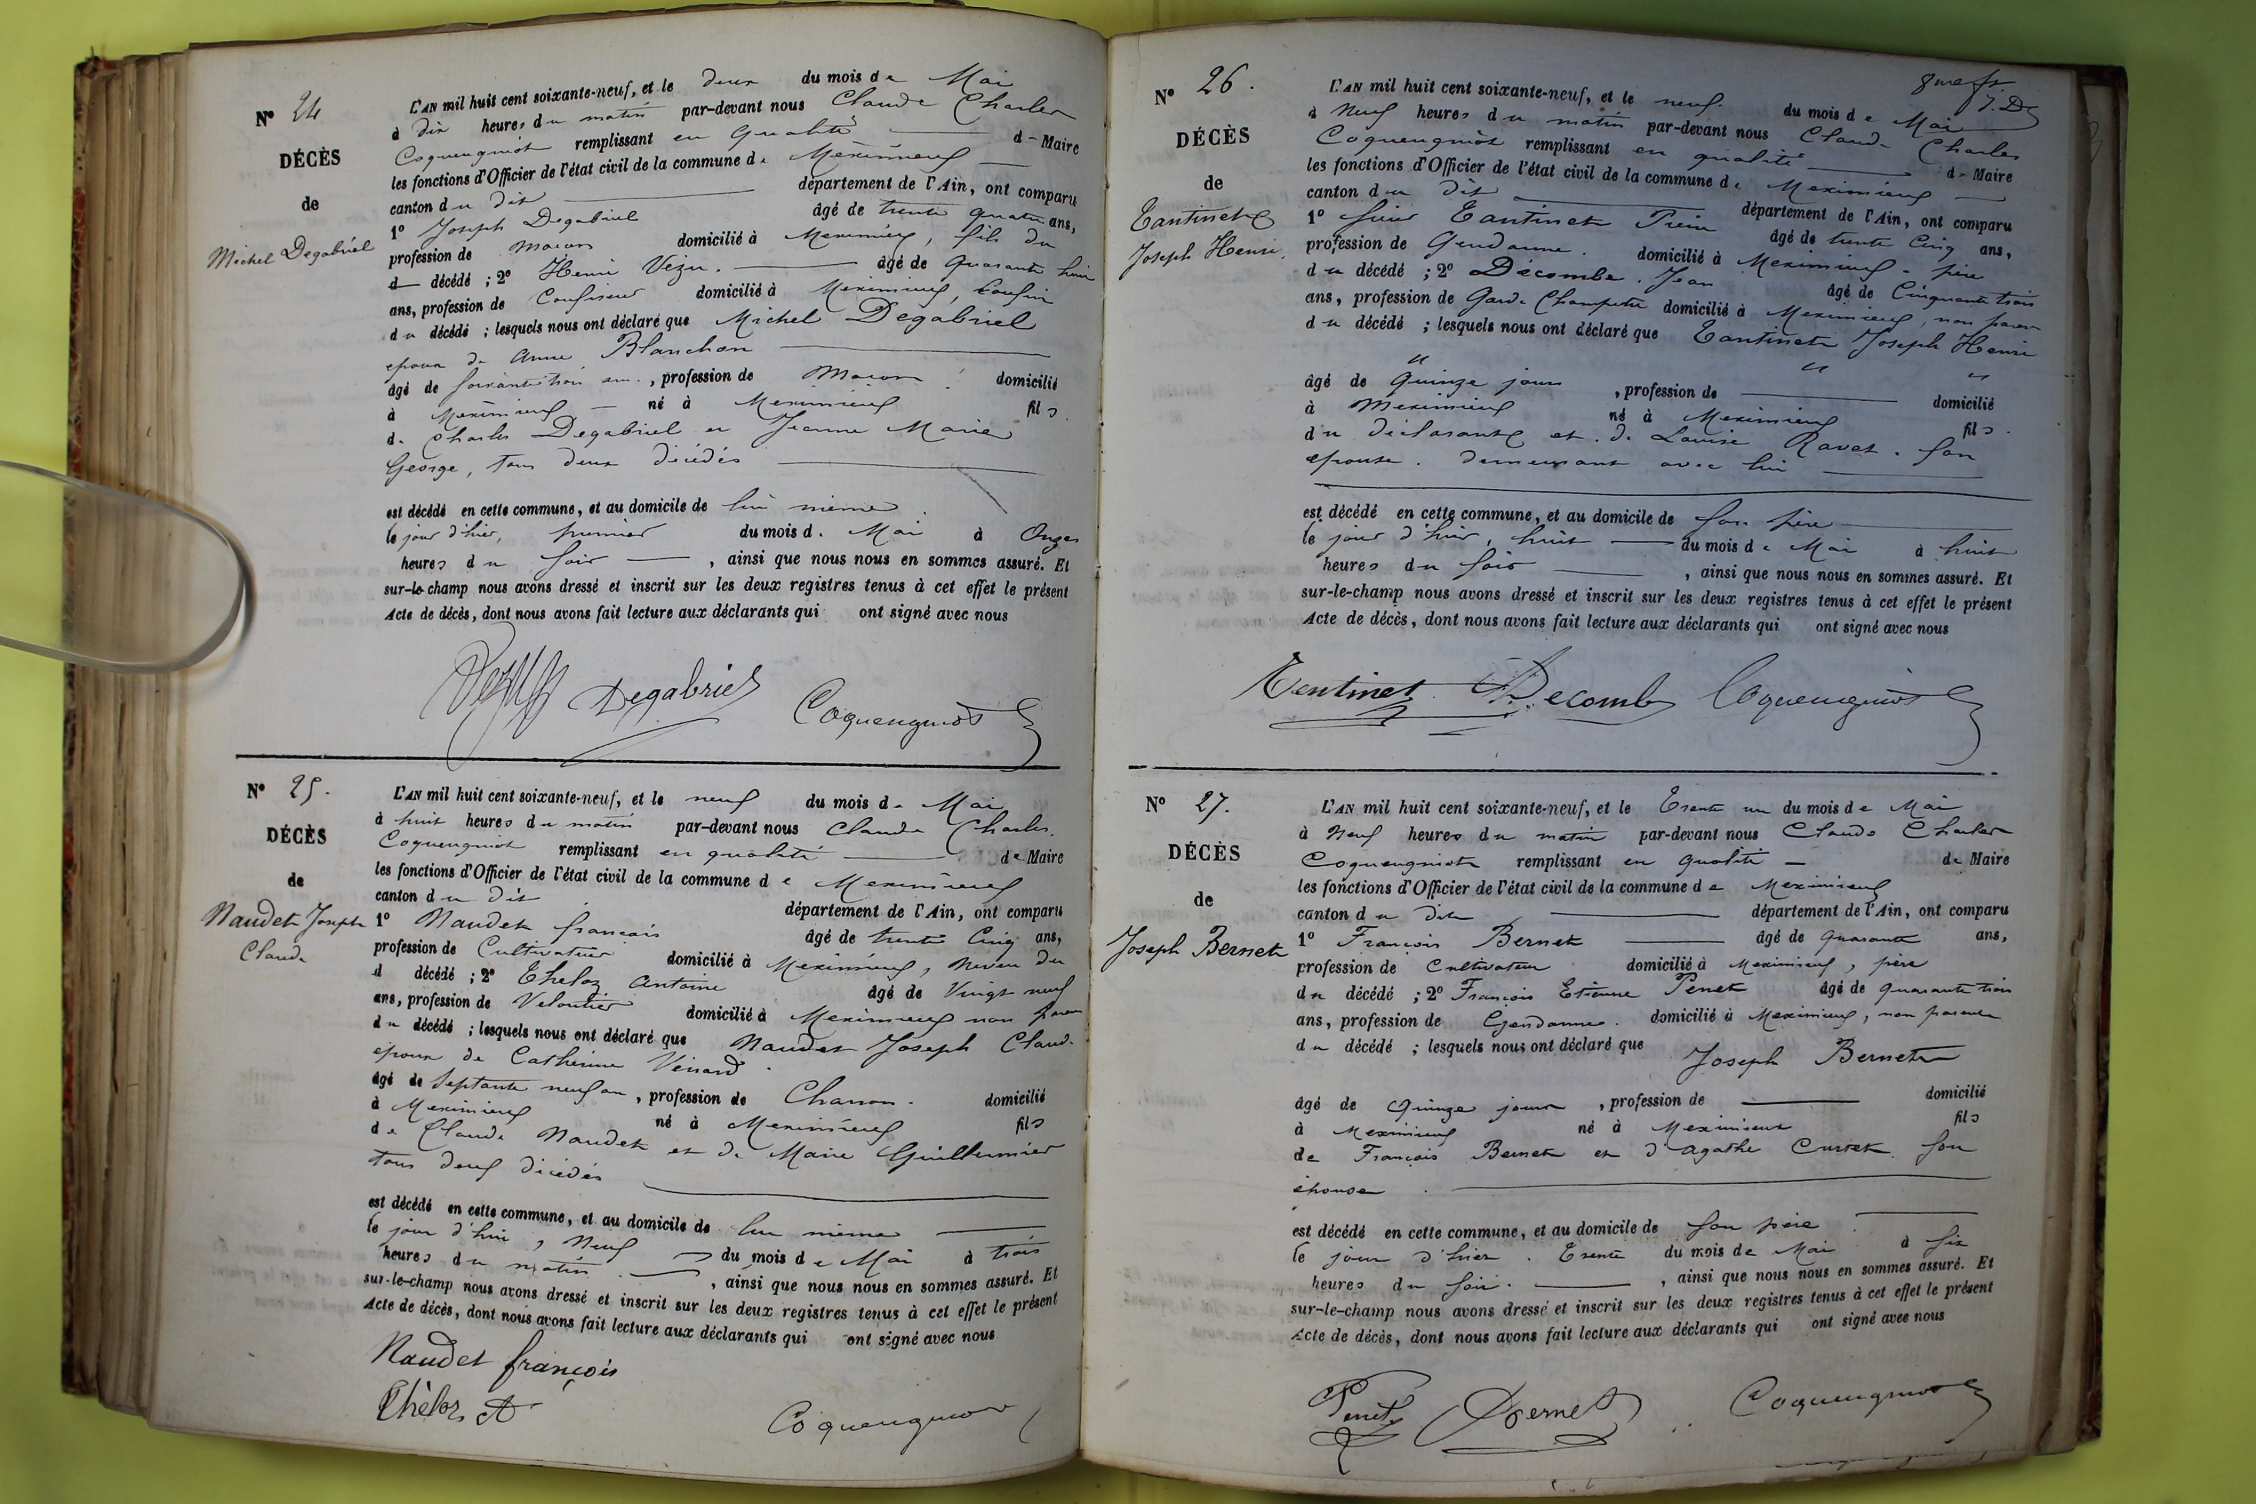 N° 24
DÉCÈS
de
Michel Degabriel
L'AN mil huit cent soixante-neuf, et le deux du mois de Mai
à dix heures du matin par-devant nous Claude Charles
Coquengniot remplissant en qualité de Maire
les fonctions d'Officier de l'état civil de la commune de Meximieux
canton du dit département de l'Ain, ont comparu
1° Joseph Degabriel âgé de trente quatre ans,
profession de Maçon domicilié à Meximieux, fils du
d décédé ; 2° Henri Vezu. âgé de quarante huit
ans, profession de Confiseur domicilié à Meximieux, cousin
du décédé ; lesquels nous ont déclaré que Michel Degabriel
epoux de Anne Blanchon
âgé de soixante trois ans., profession de Maçon domicilié
à Meximieux né à Meximieux fils
de Charles Degabriel et Jeanne Marie
George, tous deux décédés
est décédé en cette commune, et au domicile de lui même
le jour d'hier, premier du mois de Mai à Onzes
heures du soir , ainsi que nous nous en sommes assuré. Et
sur-le-champ nous avons dressé et inscrit sur les deux registres tenus à cet effet le présent
Acte de décès, dont nous avons fait lecture aux déclarants qui ont signé avec nous
Degabriel Coquengniot
N° 25.
DÉCÈS
de
Naudet Joseph
Claude
L'AN mil huit cent soixante-neuf, et le neuf du mois de Mai
à huit heures du matin par-devant nous Claude Charles.
Coquengniot remplissant en qualité de Maire
les fonctions d'Officier de l'état civil de la commune de Meximieux
canton du dit département de l'Ain, ont comparu
1° Naudet françois âgé de trente Cinq ans,
profession de Cultivateur domicilié à Meximieux, neveu du
d décédé ; 2° Theloz Antoine âgé de Vingt neuf
ans, profession de Veloutier domicilié à Meximieux non parent
du décédé ; lesquels nous ont déclaré que Naudet Joseph Claude
époux de Catherine Venard
âgé de septante neuf an, profession de Charron. domicilié
à Meximieux né à Meximieux fils
de Claude Naudet et de Marie Guillermier
tous deux décédés
est décédé en cette commune, et au domicile de lui même
le jour d'hui, Neuf du mois de Mai à trois
heures du matin. , ainsi que nous nous en sommes assuré. Et
sur-le-champ nous avons dressé et inscrit sur les deux registres tenus à cet effet le présent
Acte de décès, dont nous avons fait lecture aux déclarants qui ont signé avec nous
Naudet françois
Thèloz A
Coquengniot
N° 26.
DÉCÈS
de
Tantinet
Joseph Henri.
L'AN mil huit cent soixante-neuf, et le neuf. du mois de Mai
à Neuf heures du matin par-devant nous Claude Charles
Coquengniot remplissant en qualité de Maire
les fonctions d'Officier de l'état civil de la commune de Meximieux
canton du dit département de l'Ain, ont comparu
1° sieur Tantinet âgé de trente Cinq ans,
profession de Gendarme. domicilié à Meximieux - père
du décédé ; 2° Décombe. Jean âgé de Cinquante trois
ans, profession de Garde Champetre domicilié à Meximieux, non parent
du décédé ; lesquels nous ont déclaré que Tantinet Joseph Henri
âgé de Quinze jours , profession de domicilié
à Meximieux né à Meximieux fils.
du déclarant et. de Louise Ravet. son
epouse. demeurant avec lui
est décédé en cette commune, et au domicile de son père
le jour d'hier, huit du mois de Mai à huit
heures du soir , ainsi que nous nous en sommes assuré. Et
sur-le-champ nous avons dressé et inscrit sur les deux registres tenus à cet effet le présent
Acte de décès, dont nous avons fait lecture aux déclarants qui ont signé avec nous
Tentinet Decomb Coquengniot
N° 27.
DÉCÈS
de
Joseph Bernet
L'AN mil huit cent soixante-neuf, et le Trente un du mois de Mai
à Neuf heures du matin par-devant nous Claude Charles
Coquengniot remplissant en qualité de Maire
les fonctions d'Officier de l'état civil de la commune de Meximieux
canton du dit département de l'Ain, ont comparu
1° François Bernet âgé de quarante ans,
profession de Cultivateur domicilié à Meximieux, père
du décédé ; 2° François Etienne Penet âgé de quarante trois
ans, profession de Gendarme. domicilié à Meximieux, non parent
du décédé ; lesquels nous ont déclaré que Joseph Bernet
âgé de Quinze jours , profession de domicilié
à Meximieux né à Meximieux fils
de François Bernet et d'Agathe Curtet. son
épouse.
est décédé en cette commune, et au domicile de son père.
le jour d'hier. Trente du mois de Mai à six
heures du soir. , ainsi que nous nous en sommes assuré. Et
sur-le-champ nous avons dressé et inscrit sur les deux registres tenus à cet effet le présent
Acte de décès, dont nous avons fait lecture aux déclarants qui ont signé avec nous
Penet Bernet Coquengniot